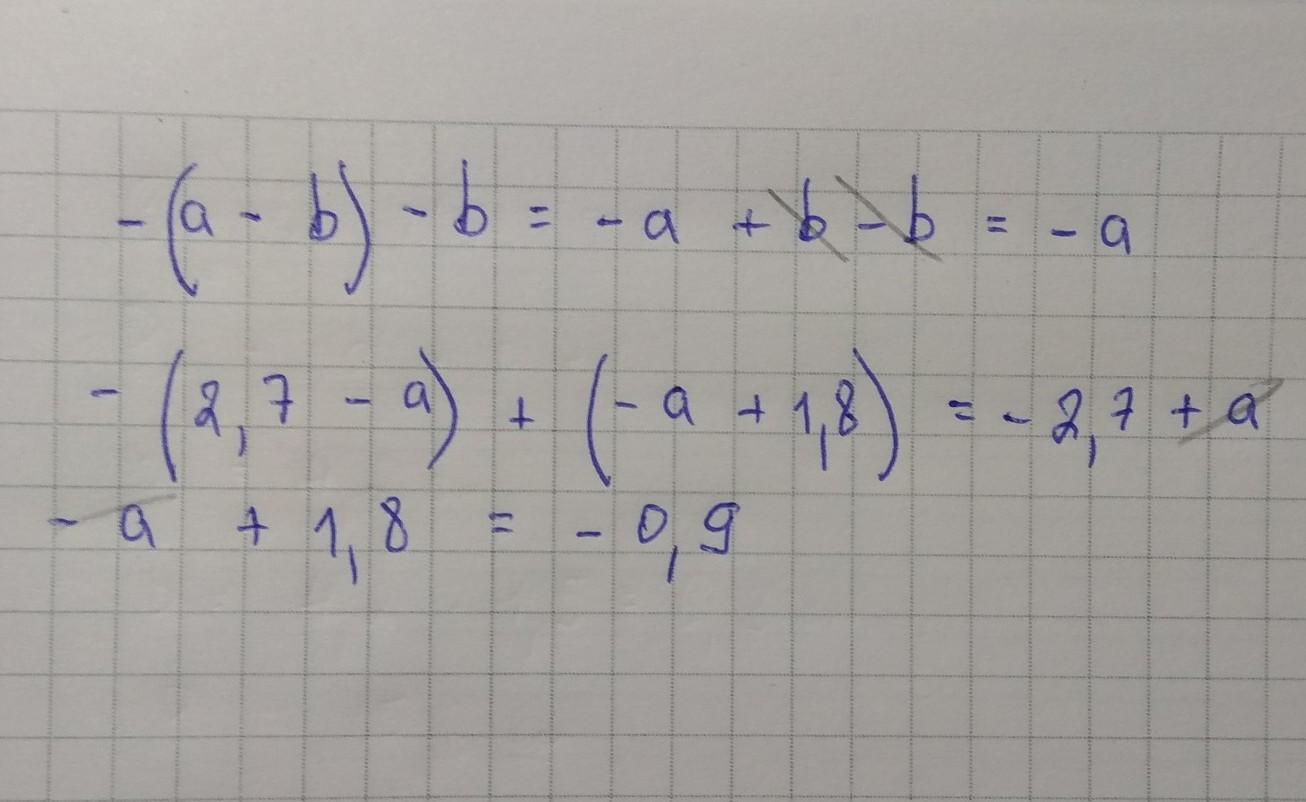 -(a - b) - b = -a + b - b = -a
-(2,7 - a) + (-a + 1,8) = -2,7 + a
-a + 1,8 = -0,9